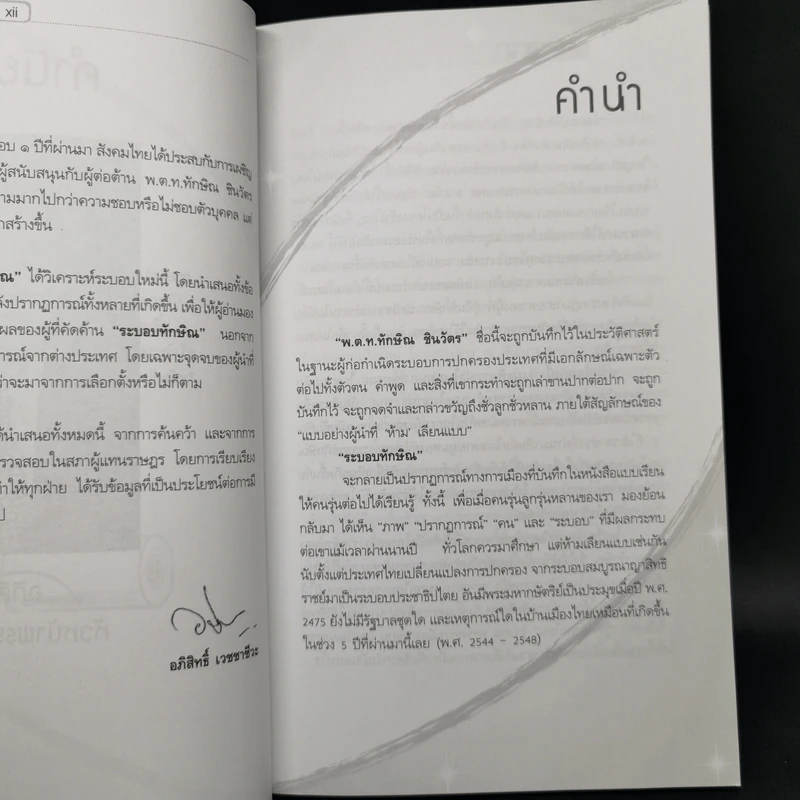 xii
อบ ๑ ปีที่ผ่านมา สังคมไทยได้ประสบกับการเผชิญ
ผู้สนับสนุนกับผู้ต่อต้าน พ.ต.ท.ทักษิณ ชินวัตร
ามมากไปกว่าความชอบหรือไม่ชอบตัวบุคคล แต่
กสร้างขึ้น
ณ" ได้วิเคราะห์ระบอบใหม่นี้ โดยนำเสนอทั้งข้อ
ังปรากฏการณ์ทั้งหลายที่เกิดขึ้น เพื่อให้ผู้อ่านมอง
ผลของผู้ที่คัดค้าน "ระบอบทักษิณ" นอกจาก
ารณ์จากต่างประเทศ โดยเฉพาะจุดจบของผู้นำที่
ว่าจะมาจากการเลือกตั้งหรือไม่ก็ตาม
ด้นำเสนอทั้งหมดนี้ จากการค้นคว้า และจากการ
รวจสอบในสภาผู้แทนราษฎร โดยการเรียบเรียง
ทำให้ทุกฝ่าย ได้รับข้อมูลที่เป็นประโยชน์ต่อการมี
ป
อภิสิทธิ์ เวชชาชีวะ
คำนำ
"พ.ต.ท.ทักษิณ ชินวัตร" ชื่อนี้จะถูกบันทึกไว้ในประวัติศาสตร์
ในฐานะผู้ก่อกำเนิดระบอบการปกครองประเทศที่มีเอกลักษณ์เฉพาะตัว
ต่อไปทั้งตัวตน คำพูด และสิ่งที่เขากระทำจะถูกเล่าขานปากต่อปาก จะถูก
บันทึกไว้ จะถูกจดจำและกล่าวขวัญถึงชั่วลูกชั่วหลาน ภายใต้สัญลักษณ์ของ
"แบบอย่างผู้นำที่ 'ห้าม' เลียนแบบ"
"ระบอบทักษิณ"
จะกลายเป็นปรากฏการณ์ทางการเมืองที่บันทึกในหนังสือแบบเรียน
ให้คนรุ่นต่อไปได้เรียนรู้ ทั้งนี้ เพื่อเมื่อคนรุ่นลูกรุ่นหลานของเรา มองย้อน
กลับมา ได้เห็น "ภาพ" "ปรากฏการณ์" "คน" และ "ระบอบ" ที่มีผลกระทบ
ต่อเขาแม้เวลาผ่านนานปี ทั่วโลกควรมาศึกษา แต่ห้ามเลียนแบบเช่นกัน
นับตั้งแต่ประเทศไทยเปลี่ยนแปลงการปกครอง จากระบอบสมบูรณาญาสิทธิ
ราชย์มาเป็นระบอบประชาธิปไตย อันมีพระมหากษัตริย์เป็นประมุขเมื่อปี พ.ศ.
2475 ยังไม่มีรัฐบาลชุดใด และเหตุการณ์ใดในบ้านเมืองไทยเหมือนที่เกิดขึ้น
ในช่วง 5 ปีที่ผ่านมานี้เลย (พ.ศ. 2544 - 2548)